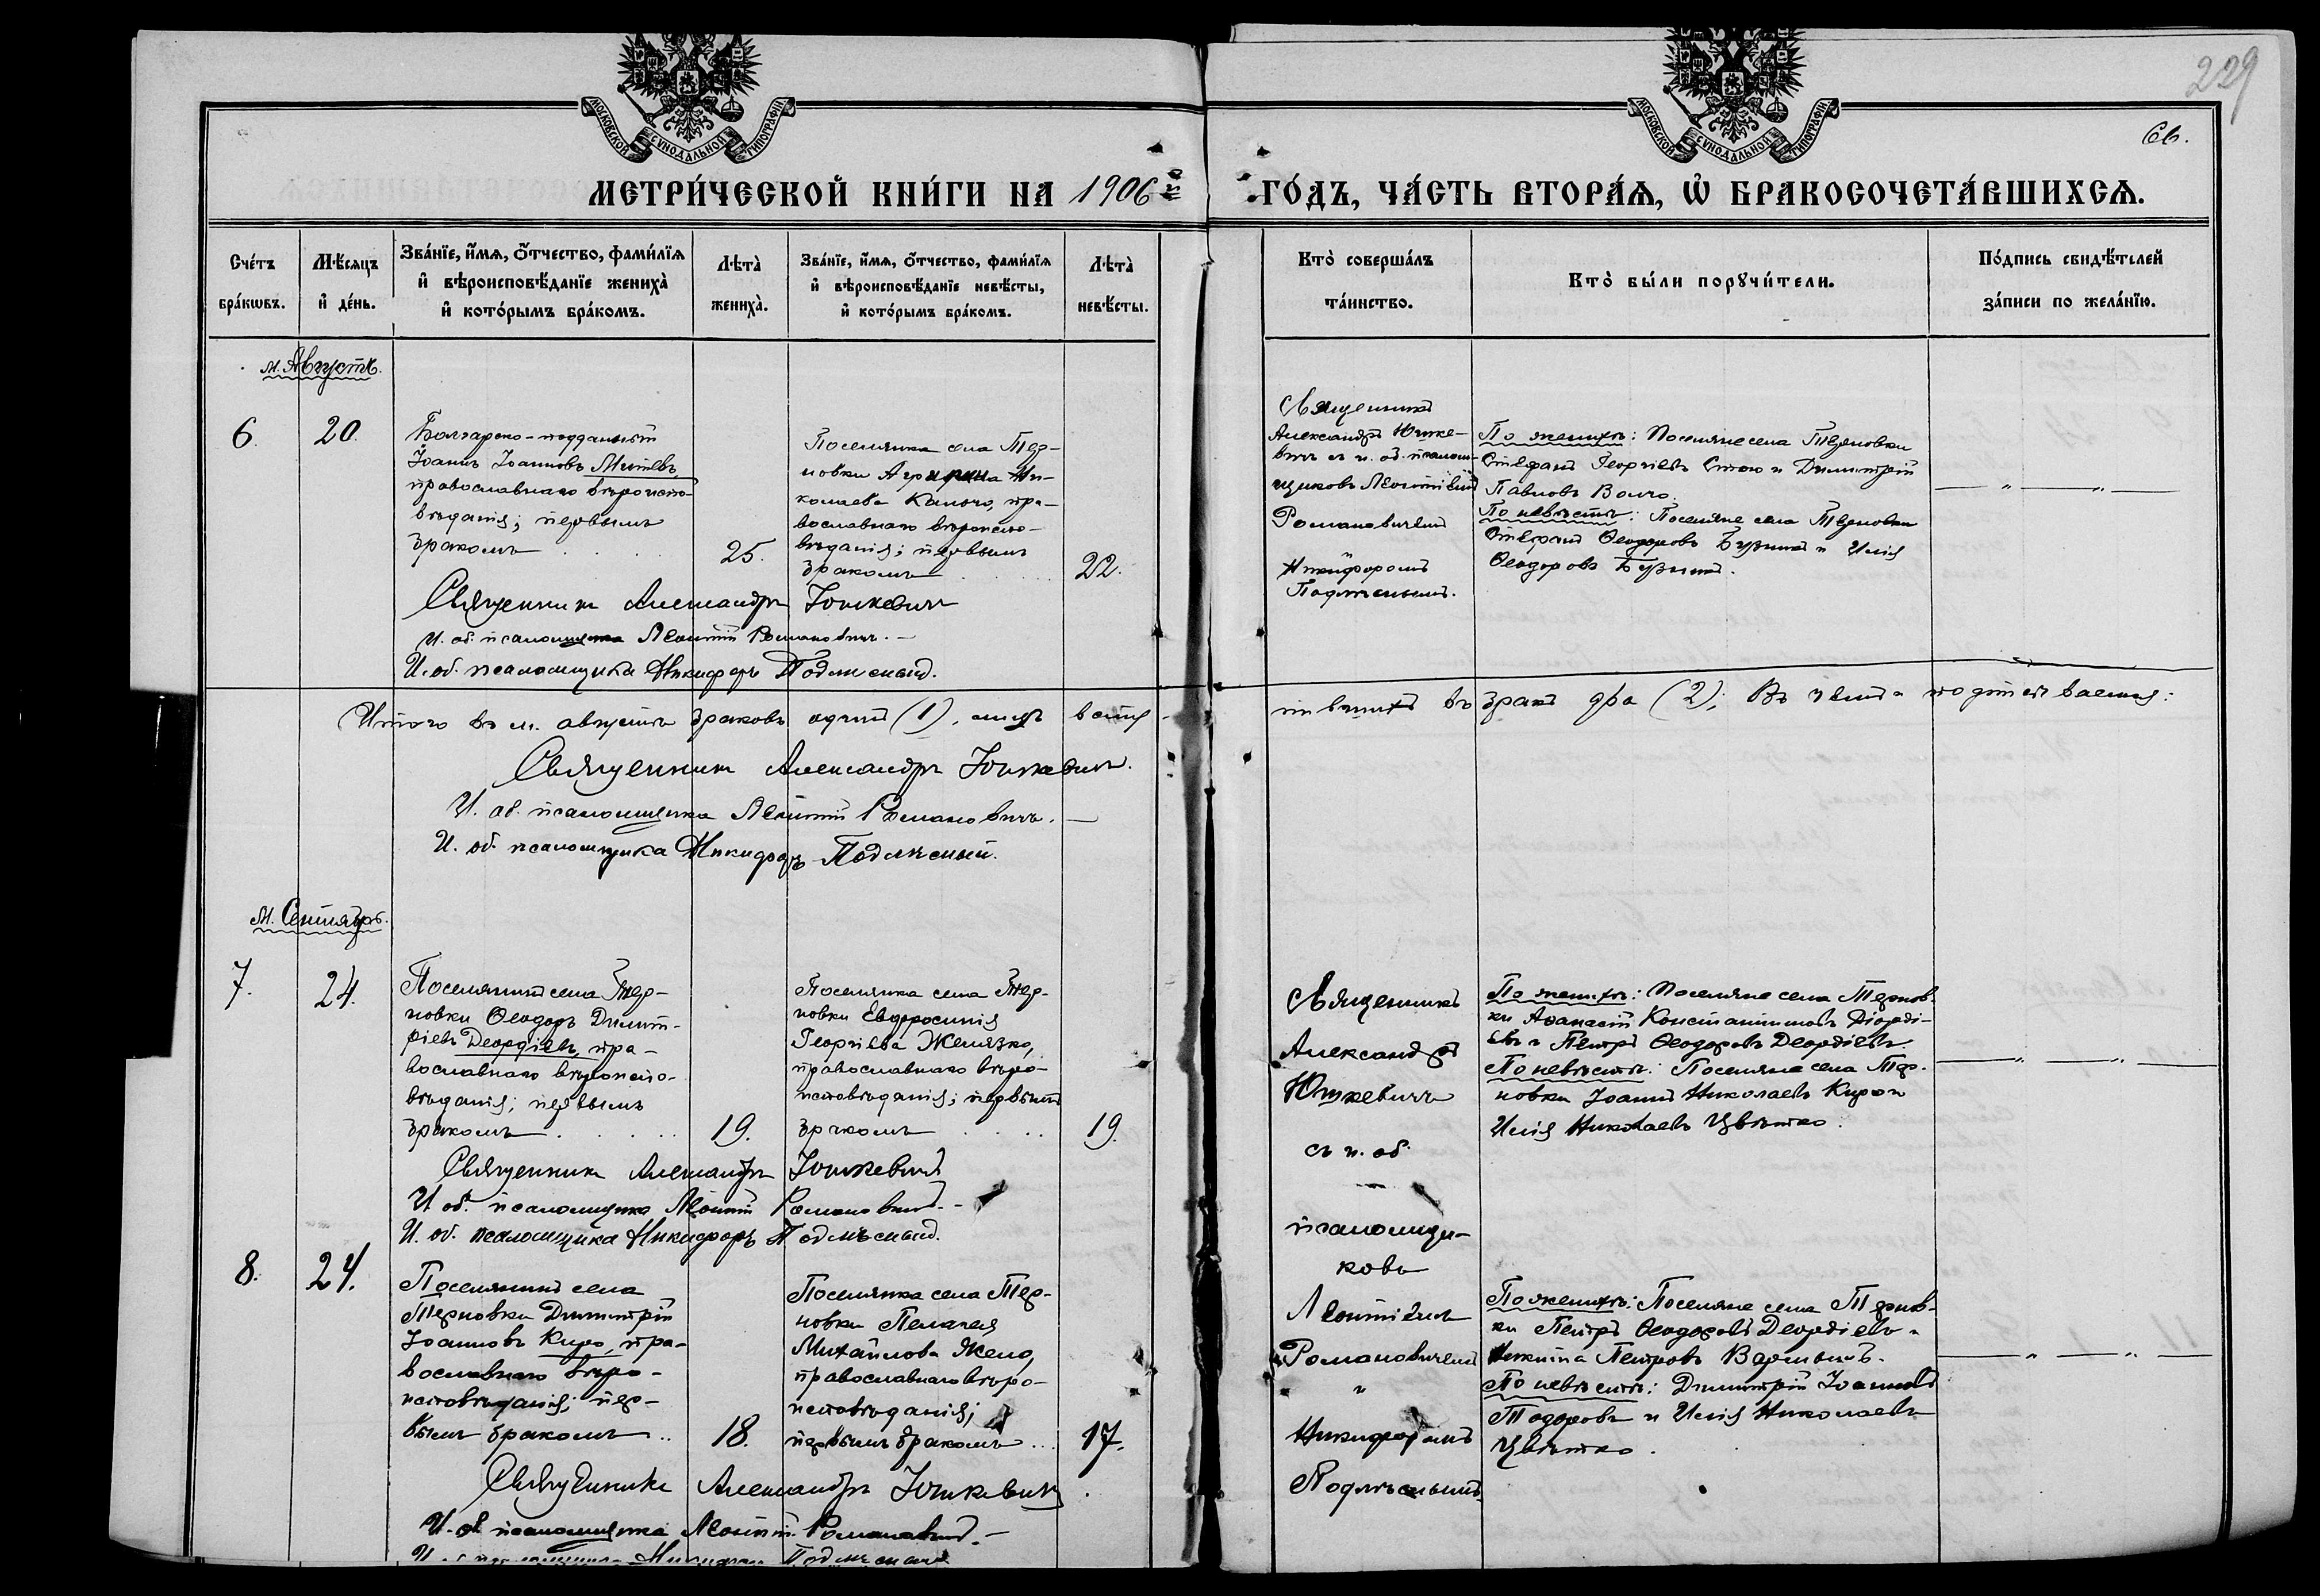 229
Св.
МОСКОВСКОЙ СѴНОДАЛЬНОЙ ТИПОГРАФІИ
МОСКОВСКОЙ СѴНОДАЛЬНОЙ ТИПОГРАФІИ
МЕТРИ́ЧЕСКОЙ КНИ́ГИ НА 1906й ГО́ДЪ, ЧА́СТЬ ВТОРА́Я, Ѡ҆ БРАКОСОЧЕТА́ВШИХСЯ.
Сче́тъ
бра́кѡвъ.
Мѣ́сяцъ
и҆ де́нь.
Зва́нїе, и҆́мя, ѻ҆́тчество, фами́лїя
и҆ вѣроисповѣ́данїе жениха̀
и҆ кото́рымъ бра́комъ.
Лѣта̀
жениха̀.
Зва́нїе, и҆́мя, ѻ҆́тчество, фами́лїя
и҆ вѣроисповѣ́данїе невѣ́сты,
и҆ кото́рымъ бра́комъ.
Лѣта̀
невѣ́сты.
Кто̀ соверша́лъ
та́инство.
Кто̀ бы́ли порꙋчи́тели.
По́дпись свидѣ́телей
за́писи по жела́нїю.
м. Августъ.
6.
20.
Болгарско-подданный
Іоаннъ Іоанновъ Митевъ,
православнаго вѣроиспо-
вѣданія; первымъ
бракомъ
25.
Поселянка села Тер-
новки Агрипина Ни-
колаева Калчо, пра-
вославнаго вѣроиспо-
вѣданія; первымъ
бракомъ
22.
Священникъ
Александръ Юшке-
вичъ съ и. об. псалом-
щиковъ Леонтіемъ
Романовичемъ
и
Никифоромъ
Подлѣснымъ.
По женихѣ: Поселяне села Терновки
Стефанъ Георгіевъ Стою и Димитрій
Павловъ Волчо.
По невѣстѣ: Поселяне села Терновки
Стефанъ Ѳеодоровъ Бузникъ и Илія
Ѳеодоровъ Бузникъ.
Священникъ Александръ Юшкевичъ
И. об. псаломщика Леонтій Романовичъ.
И. об. псаломщика Никифоръ Подлѣсный.
Итого въ м. августѣ браковъ одинъ (1), лицъ вступ-
ившихъ въ бракъ два (2); Въ чемъ и подписываемся:
Священникъ Александръ Юшкевичъ.
И. об. псаломщика Леонтій Романовичъ.
И. об. псаломщика Никифоръ Подлѣсный.
М. Сентябрь.
7.
24.
Поселянинъ села Тер-
новки Ѳеодоръ Димит-
ріевъ Деордіевъ, пра-
вославнаго вѣроиспо-
вѣданія; первымъ
бракомъ
19.
Поселянка села Тер-
новки Евфросинія
Георгіева Желязко,
православнаго вѣро-
исповѣданія; первымъ
бракомъ
19.
Священникъ
Александръ
Юшкевичъ
съ и. об.
псаломщи-
ковъ
Леонтіемъ
Романовичемъ
и
Никифоромъ
Подлѣснымъ.
По женихѣ: Поселяне села Тернов-
ки Аѳанасій Константиновъ Діорді-
евъ и Петръ Ѳеодоровъ Деордіевъ.
По невѣстѣ: Поселяне села Тер-
новки Іоаннъ Николаевъ Киро и
Илія Николаевъ Цвѣтко.
Священникъ Александръ Юшкевичъ
И. об. псаломщика Леонтій Романовичъ.
И. об. псаломщика Никифоръ Подлѣсный.
8.
24.
Поселянинъ села
Терновки Димитрій
Іоанновъ Киро, пра-
вославнаго вѣро-
исповѣданія; пер-
вымъ бракомъ
18.
Поселянка села Тер-
новки Пелагея
Михайлова Желю,
православнаго вѣро-
исповѣданія;
первымъ бракомъ
17.
По женихѣ: Поселяне села Тернов-
ки Петръ Ѳеодоровъ Деордіевъ и
Никита Петровъ
По невѣстѣ: Димитрій Іоанновъ
Тодоровъ и Илія Николаевъ
Цвѣтко.
Священникъ Александръ Юшкевичъ
И. об. псаломщика Леонтій Романовичъ.